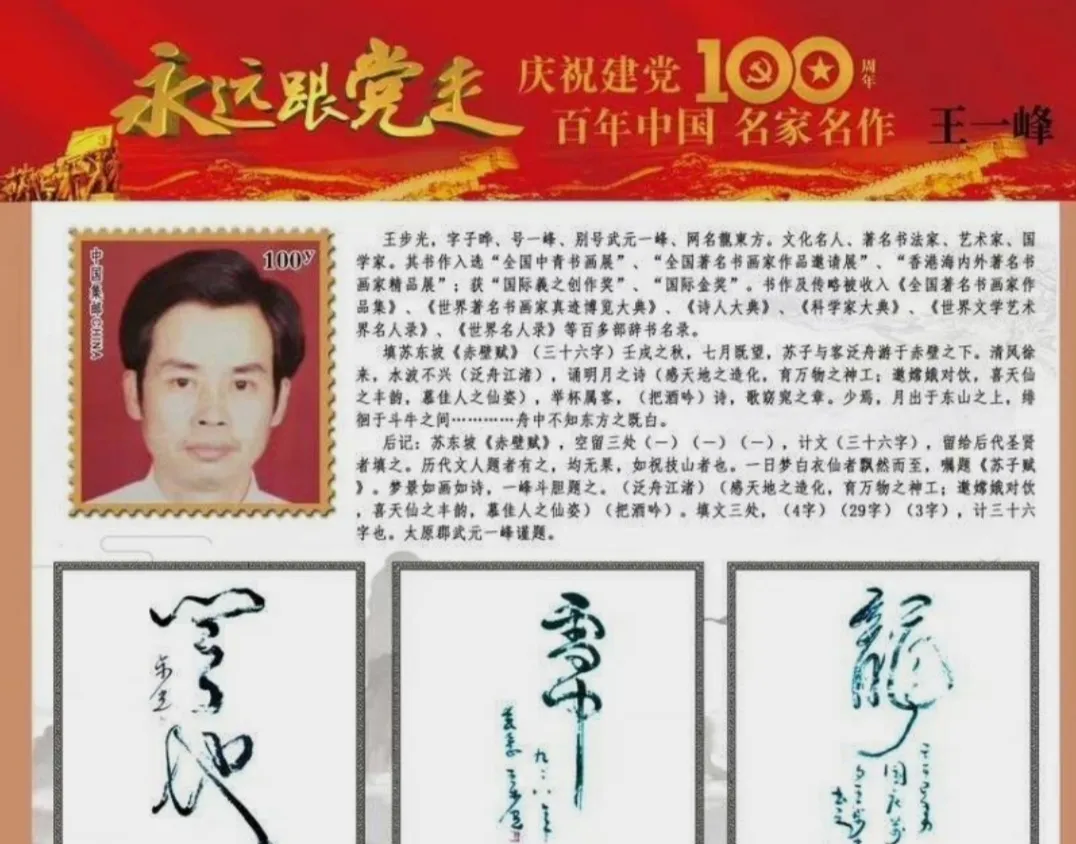 永远跟党走
庆祝建党100周年
百年中国 名家名作
王一峰
100y
王步光，字子晔、号一峰、别号武元一峰、网名龍東方。文化名人、著名书法家、艺术家、国
学家。其书作入选“全国中青书画展”、“全国著名书画家作品邀请展”、“香港海内外著名书
画家精品展”；获“国际義之创作奖”、“国际金奖”。书作及传略被收入《全国著名书画家作
品集》、《世界著名书画家真迹博览大典》、《诗人大典》、《科学家大典》、《世界文学艺术
界名人录》、《世界名人录》等百多部辞书名录。
填苏东坡《赤壁赋》（三十六字）壬戌之秋，七月既望，苏子与客泛舟游于赤壁之下。清风徐
来，水波不兴（泛舟江渚），诵明月之诗（感天地之造化，育万物之神工；邀嫦娥对饮，喜天仙
之丰韵，慕佳人之仙姿），举杯属客，（把酒吟）诗，歌窈窕之章。少焉，月出于东山之上，徘
徊于斗牛之间…………舟中不知东方之既白。
后记：苏东坡《赤壁赋》，空留三处（一）（一）（一），计文（三十六字），留给后代圣贤
者填之。历代文人题者有之，均无果，如祝技山者也。一日梦白衣仙者飘然而至，嘱题《苏子赋
》。梦景如画如诗，一峰斗胆题之。（泛舟江渚）（感天地之造化，育万物之神工；邀嫦娥对饮
，喜天仙之丰韵，慕佳人之仙姿）（把酒吟）。填文三处，（4字）（29字）（3字），计三十六
字也。太原郡武元一峰谨题。
雪中
龍